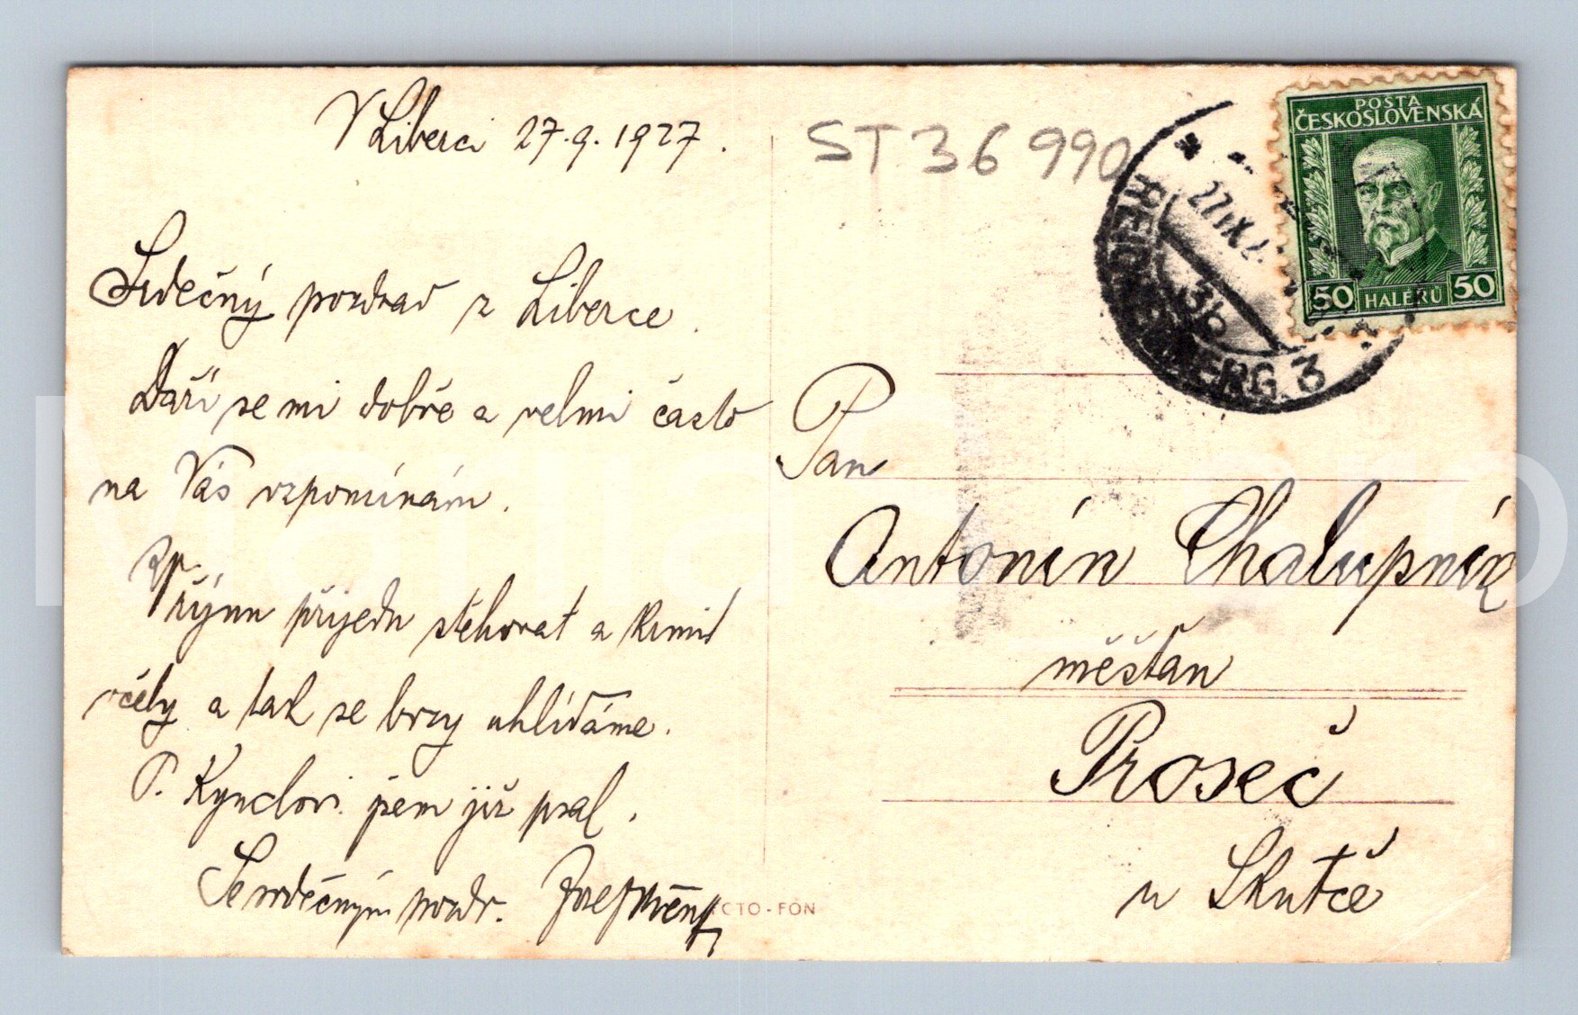 V Liberci 27.9.1927.
Srdečný pozdrav z Liberce.
Daří se mi dobře a velmi často
na Vás vzpomínám.
Říjnu přijedu stěhovat a krmit
včely a tak se brzy uhlídáme.
P. Kynclovi jsem již psal.
Se srdečným pozdr. Josef
CTO-FÓN
ST 36 990
POŠTA
ČESKOSLOVENSKÁ
50 HALÉŘŮ 50
27.IX.2
3b
BERG 3
Pan
Antonín Chalupník
měšťan
Proseč
u Skutče